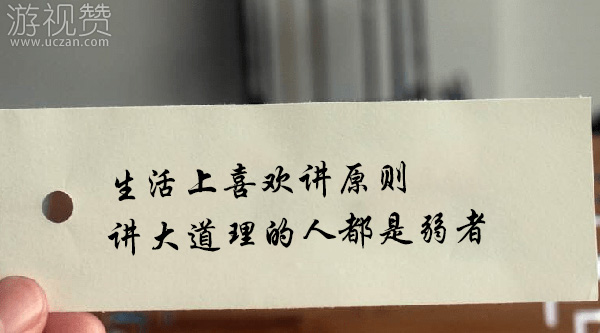 游视赞
www.uczan.com
生活上喜欢讲原则
讲大道理的人都是弱者